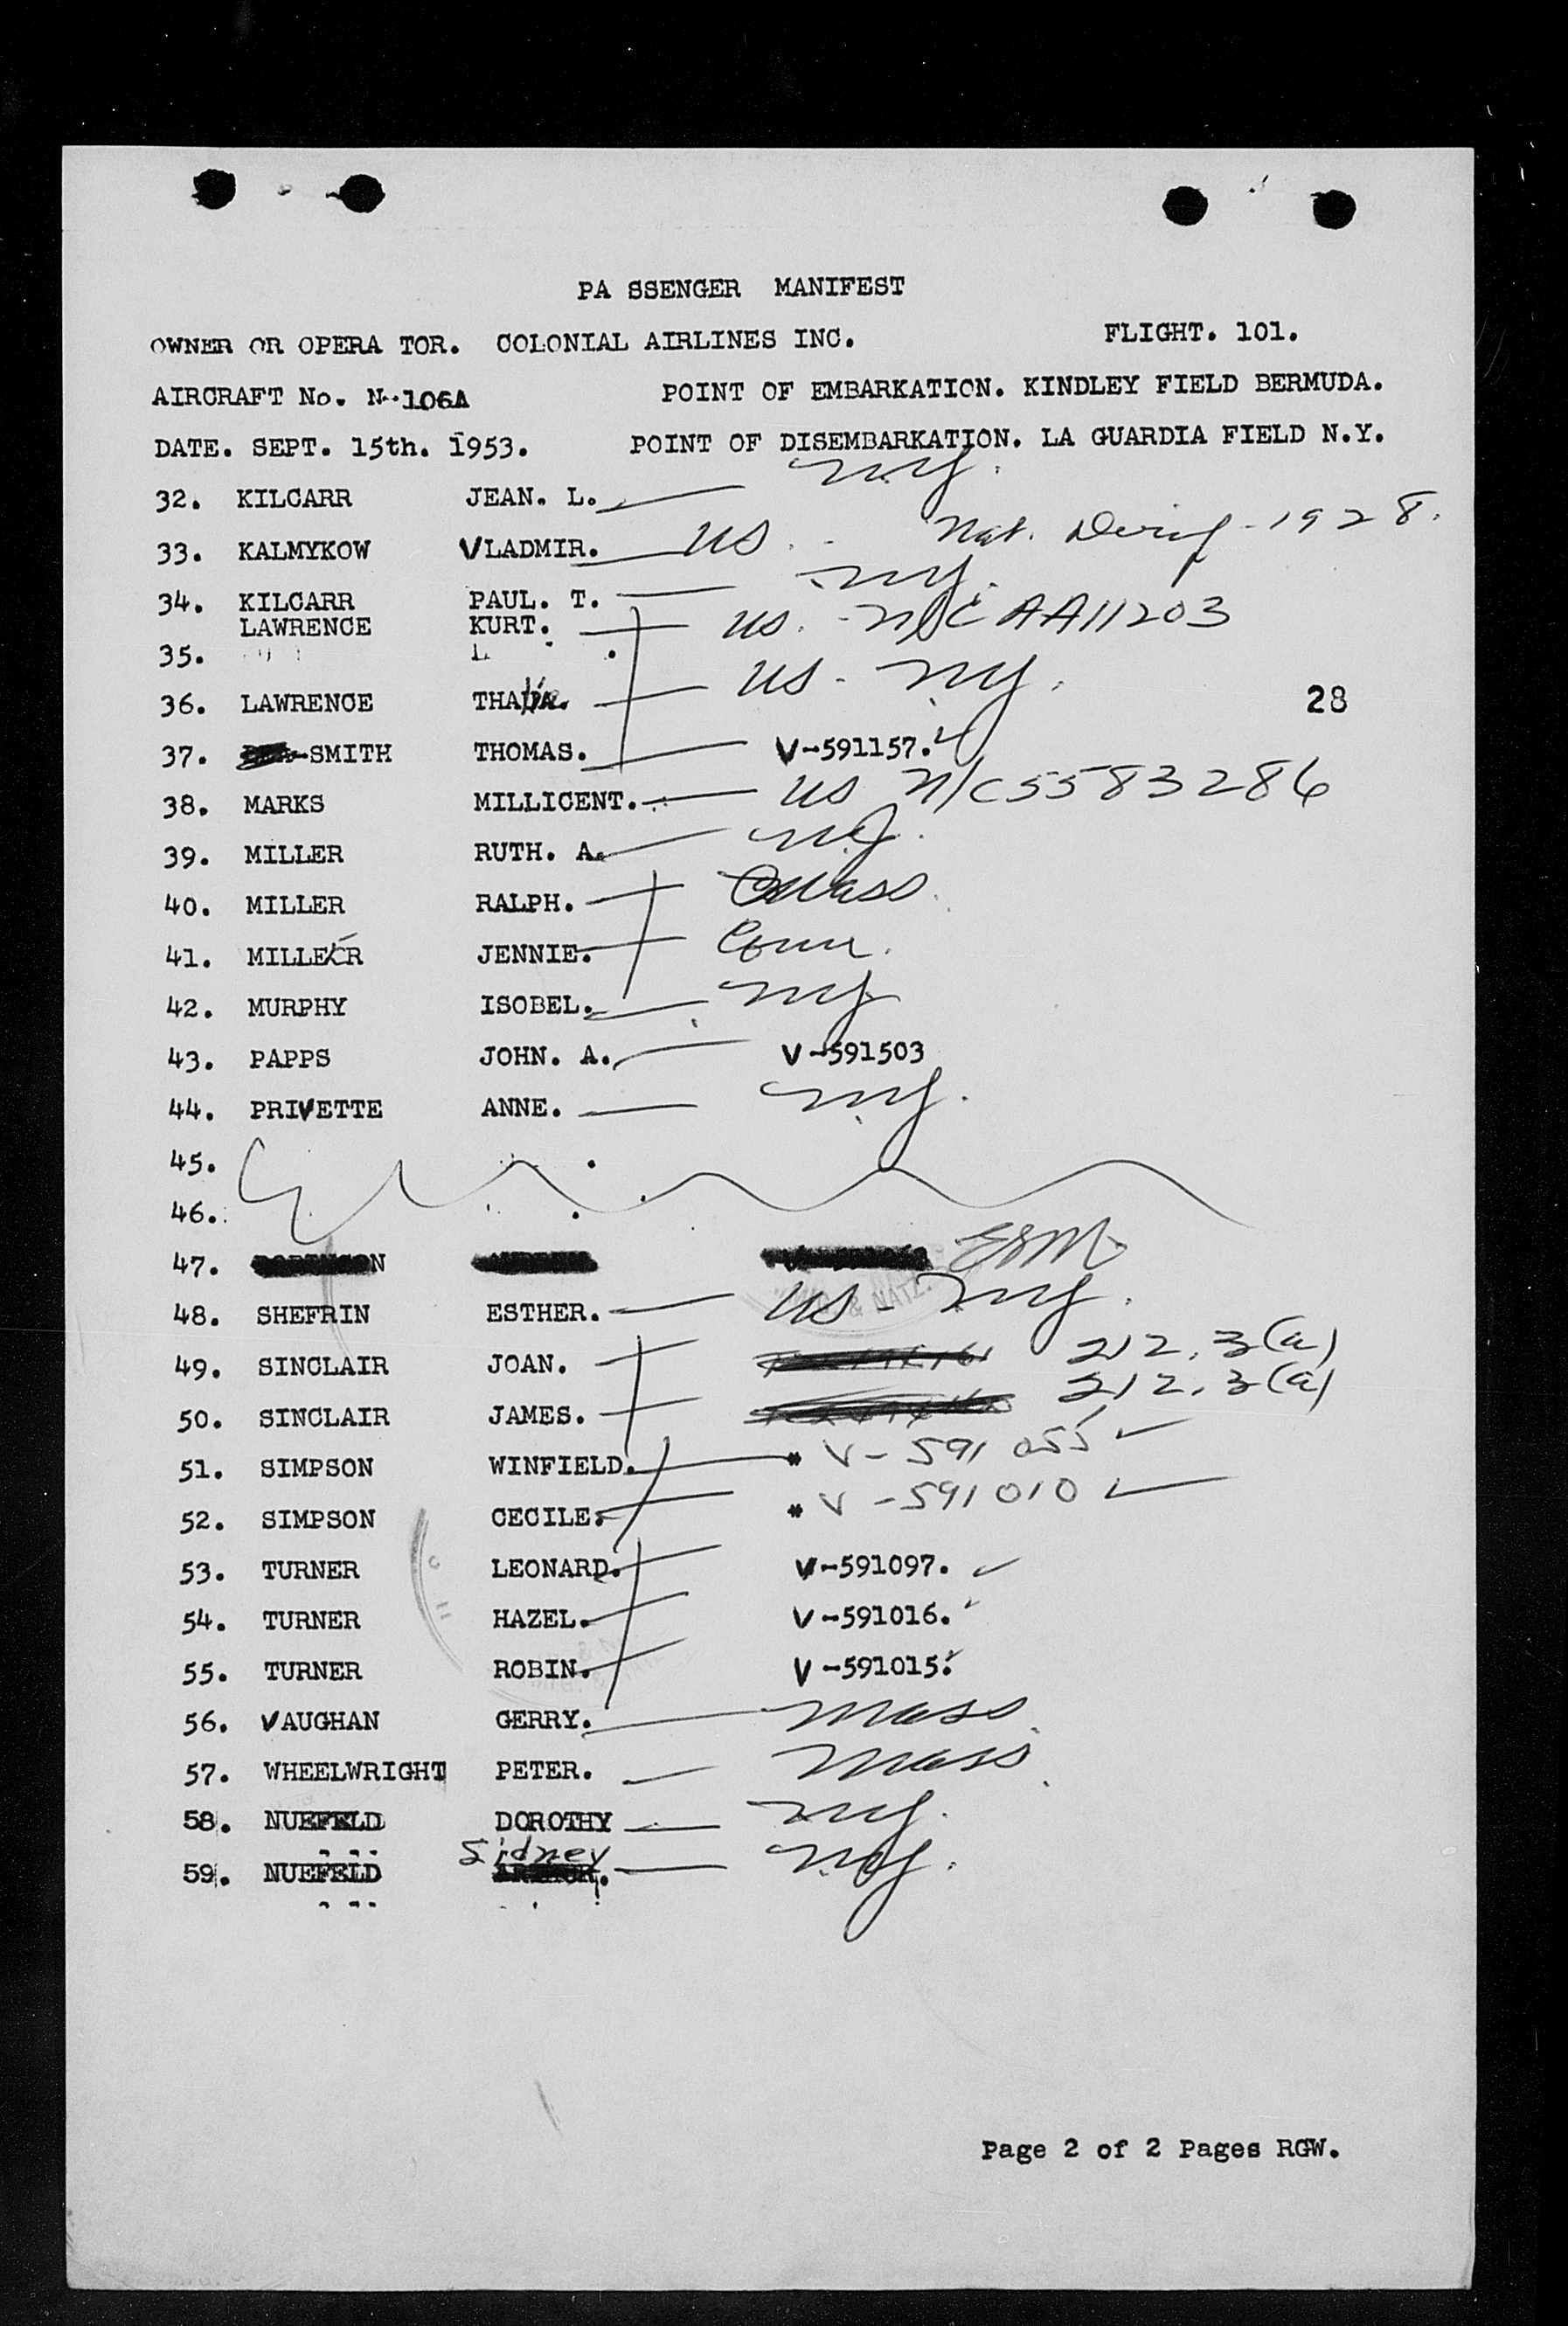 PA SSENGER MANIFEST
OWNER OR OPERA TOR. COLONIAL AIRLINES INC. FLIGHT. 101.
AIRCRAFT No. N-106A POINT OF EMBARKATION. KINDLEY FIELD BERMUDA.
DATE. SEPT. 15th. 1953. POINT OF DISEMBARKATION. LA GUARDIA FIELD N.Y.
32. KILCARR JEAN. L. NY.
33. KALMYKOW VLADMIR. US. - Nat. 1928.
34. KILCARR PAUL. T. NY.
LAWRENCE KURT. US. - N/C AA11203
35.
36. LAWRENCE US - NY. 28
37. SMITH THOMAS. V-591157.
38. MARKS MILLICENT. US N/C 5583286
39. MILLER RUTH. A. NY.
40. MILLER RALPH. Mass.
41. MILLER JENNIE. Conn.
42. MURPHY ISOBEL. NY
43. PAPPS JOHN. A. V-591503
44. PRIVETTE ANNE. NY.
45.
46.
47.
48. SHEFRIN ESTHER. US - NY.
49. SINCLAIR JOAN. 212.3(a)
50. SINCLAIR JAMES. 212.3(a)
51. SIMPSON WINFIELD. * V-591055
52. SIMPSON CECILE. * V-591010
53. TURNER LEONARD. V-591097.
54. TURNER HAZEL. V-591016.
55. TURNER ROBIN. V-591015.
56. VAUGHAN GERRY. Mass.
57. WHEELWRIGHT PETER. Mass.
58. NUEFELD DOROTHY NY.
59. NUEFELD Sidney NY.
Page 2 of 2 Pages RGW.